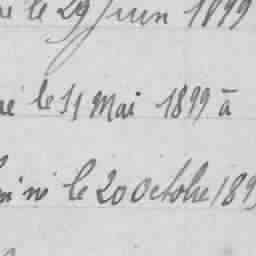 le 29 Juin 1899
né le 11 Mai 1899 à
né le 20 Octobre 189